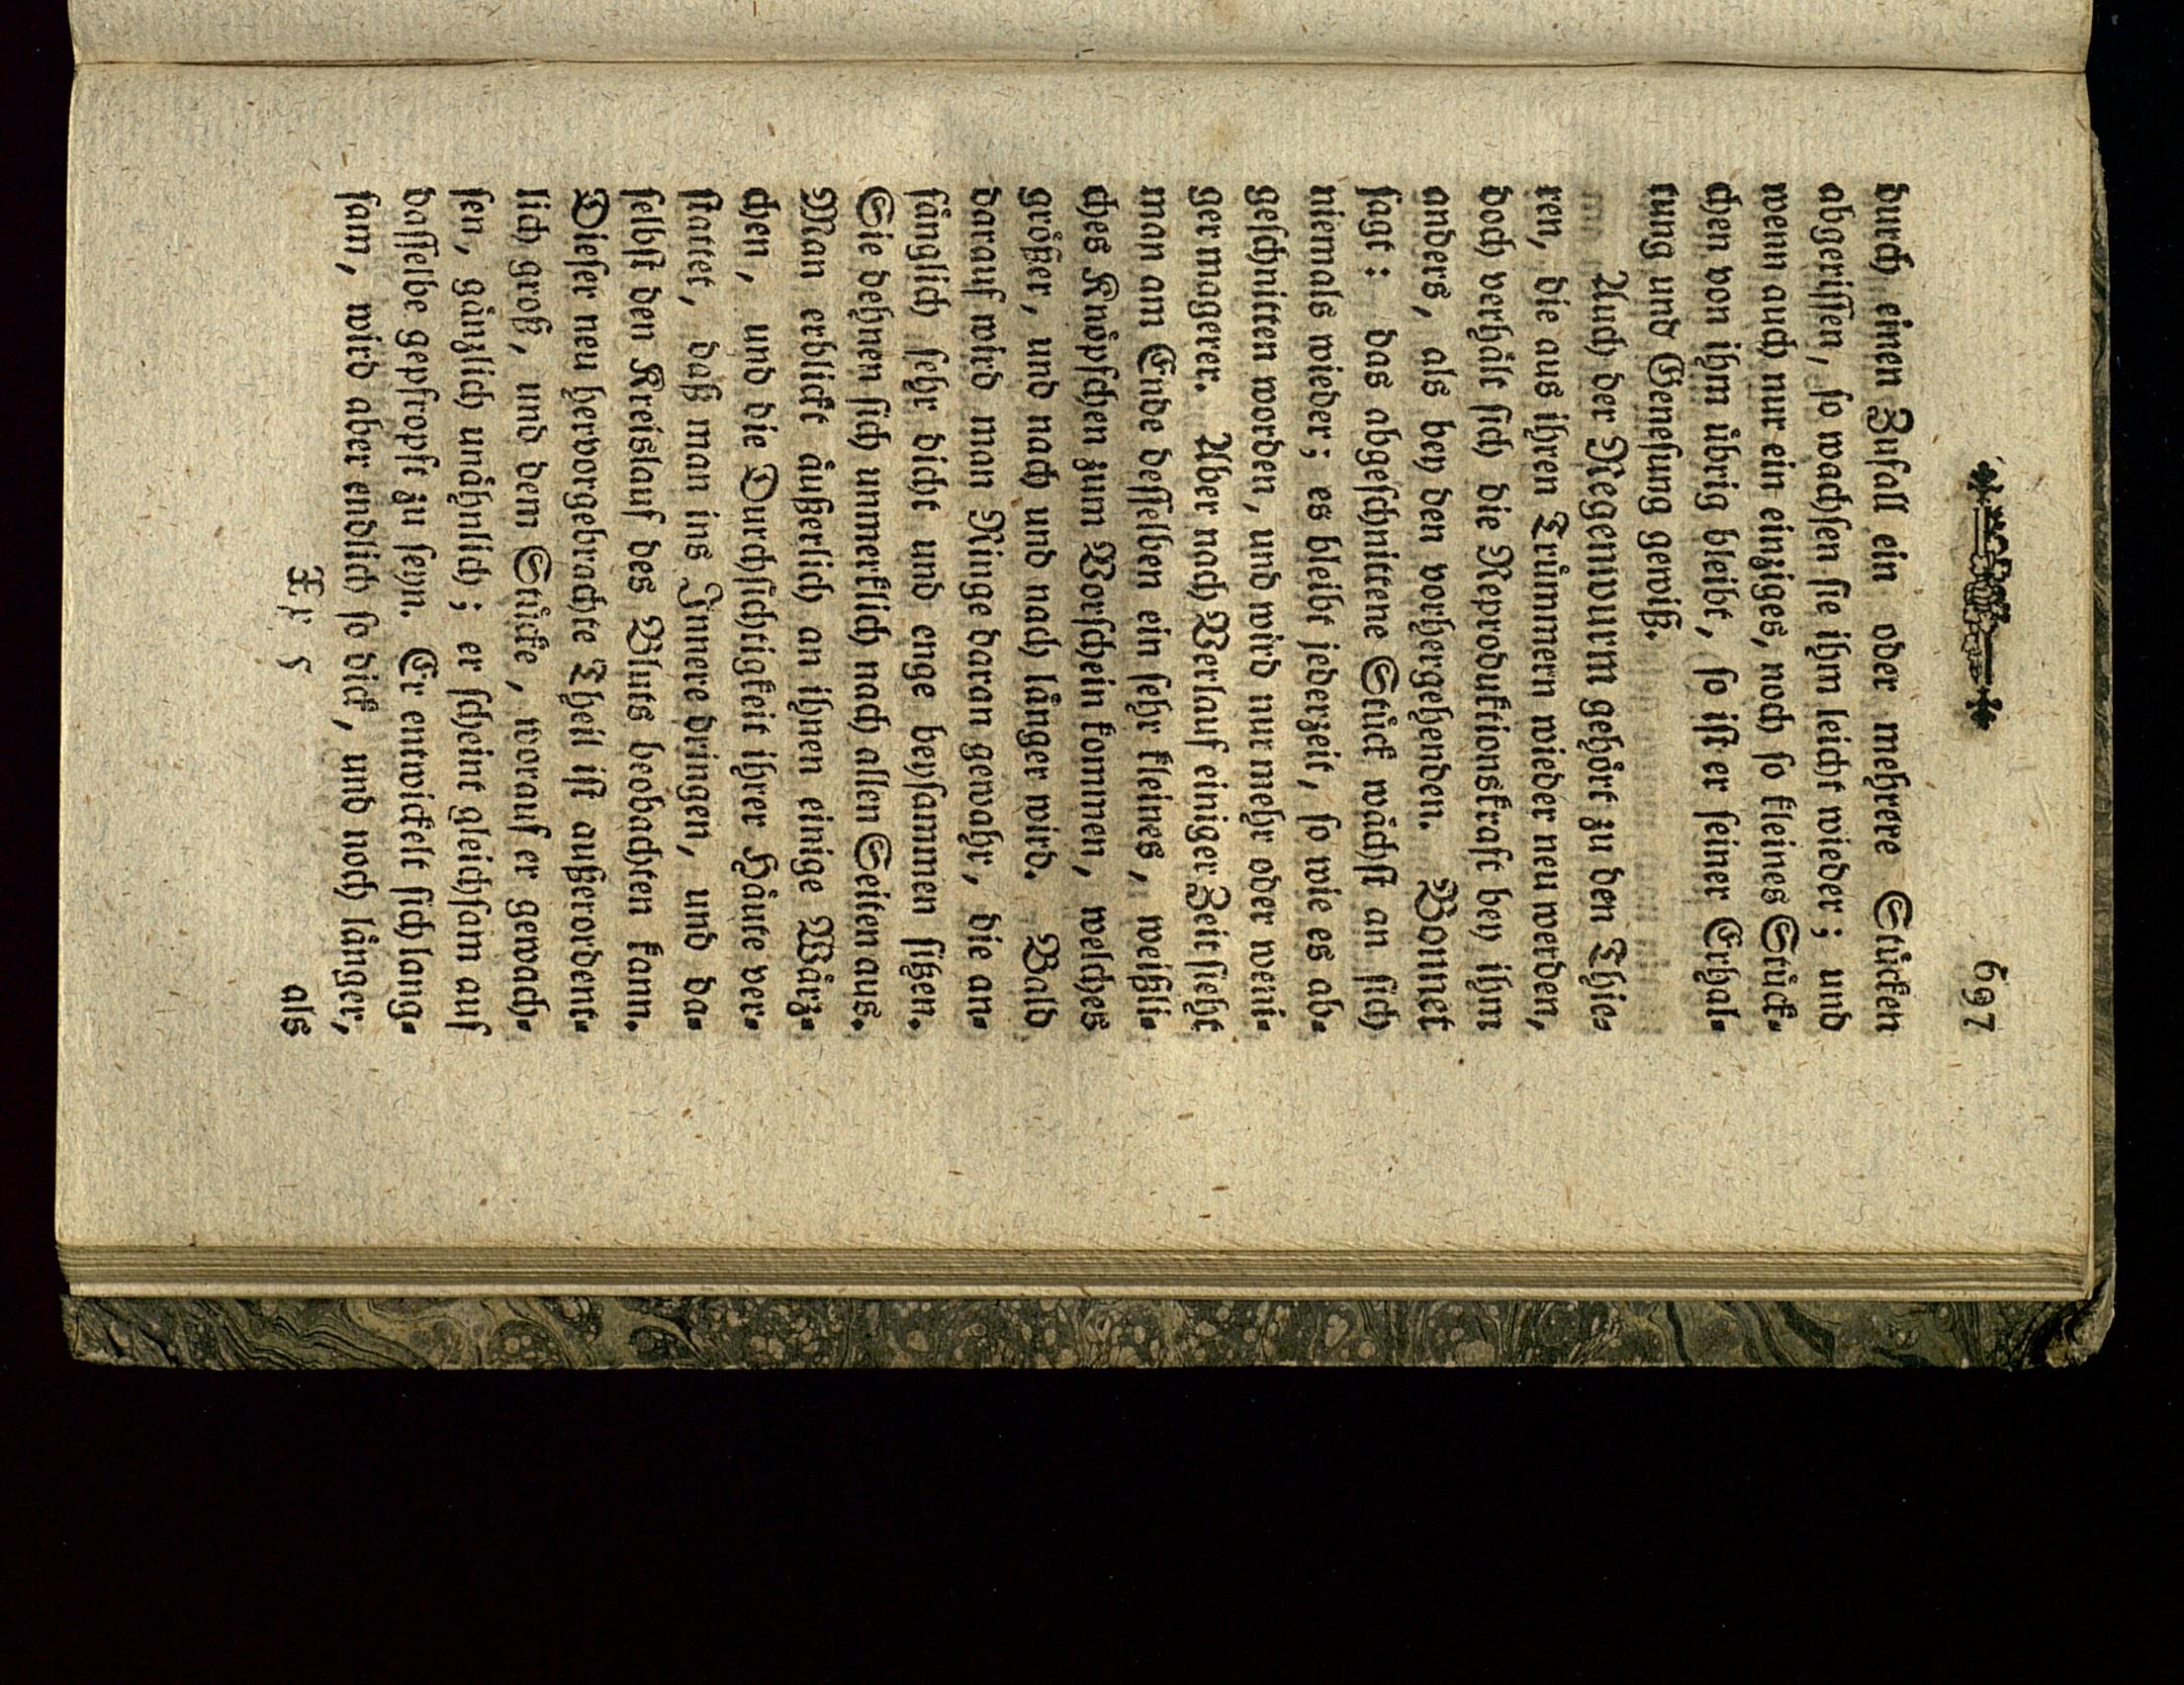 697
durch einen Zufall ein oder mehrere Stücken
abgeriſſen, ſo wachſen ſie ihm leicht wieder; und
wenn auch nur ein einziges, noch ſo kleines Stück-
chen von ihm übrig bleibt, ſo iſt er ſeiner Erhal-
tung und Geneſung gewiß.
Auch der Regenwurm gehört zu den Thie-
ren, die aus ihren Trümmern wieder neu werden,
doch verhält ſich die Reproduktionskraft bey ihm
anders, als bey den vorhergehenden. Bonnet
ſagt: das abgeſchnittene Stück wächſt an ſich
niemals wieder; es bleibt jederzeit, ſo wie es ab-
geſchnitten worden, und wird nur mehr oder weni-
ger magerer. Aber nach Verlauf einiger Zeit ſieht
man am Ende deſſelben ein ſehr kleines, weißli-
ches Knöpfchen zum Vorſchein kommen, welches
größer, und nach und nach länger wird. Bald
darauf wird man Ringe daran gewahr, die an-
fänglich ſehr dicht und enge beyſammen ſitzen.
Sie dehnen ſich unmerklich nach allen Seiten aus.
Man erblickt äußerlich an ihnen einige Wärz-
chen, und die Durchſichtigkeit ihrer Häute ver-
ſtattet, daß man ins Innere dringen, und da-
ſelbſt den Kreislauf des Bluts beobachten kann.
Dieſer neu hervorgebrachte Theil iſt außerordent-
lich groß, und dem Stücke, worauf er gewach-
ſen, gänzlich unähnlich; er ſcheint gleichſam auf
daſſelbe gepfropft zu ſeyn. Er entwickelt ſich lang-
ſam, wird aber endlich ſo dick, und noch länger,
Xx 5
als